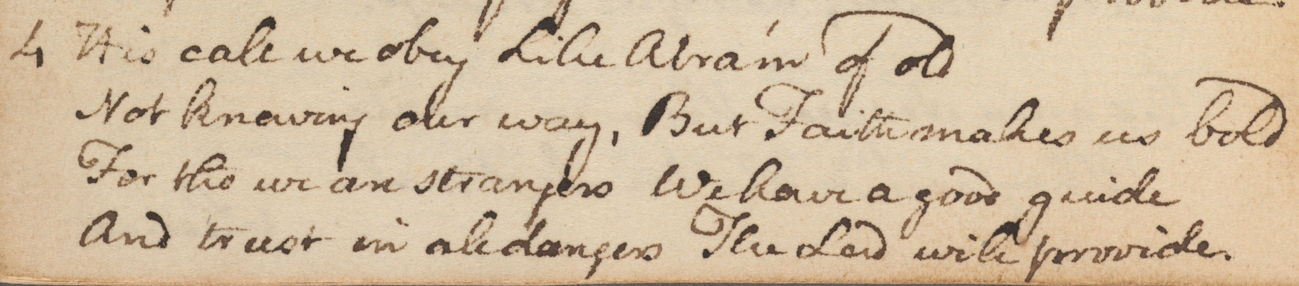 provide.
4 His call we obey Like Abra'm of old
Not knowing our way, But Faith makes us bold
For tho we are strangers We have a good guide
And trust in all dangers The Lord will provide.